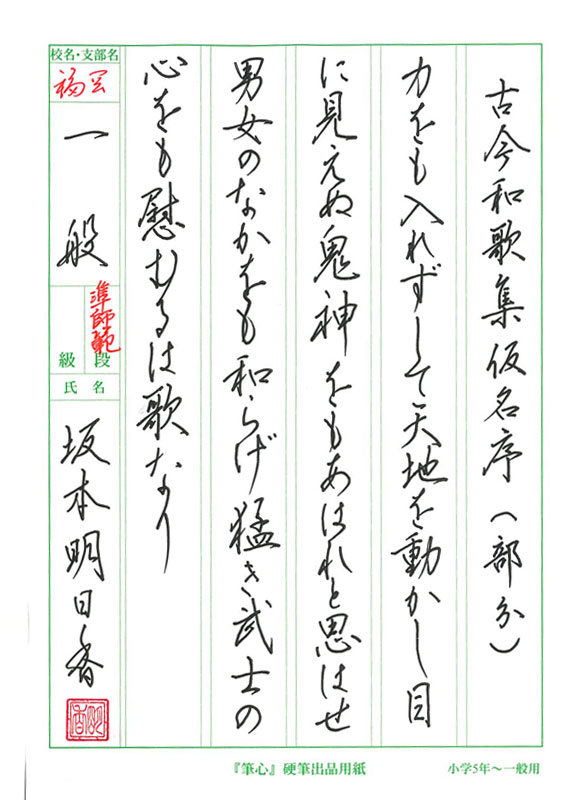 古今和歌集仮名序(部分)
力をも入れずして天地を動かし目
に見えぬ鬼神をもあはれと思はせ
男女のなかをも和らげ猛き武士の
心をも慰むるは歌なり
校名・支部名
福岡
一般
準師範
段
級
氏名
坂本明日香
『筆心』硬筆出品用紙
小学5年〜一般用